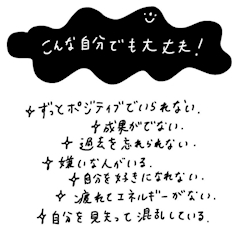 こんな自分でも大丈夫!
ずっとポジティブでいられない.
成果がでない.
過去を忘れられない.
嫌いな人がいる.
自分を好きになれない.
疲れてエネルギーがない.
自分を見失って混乱している.